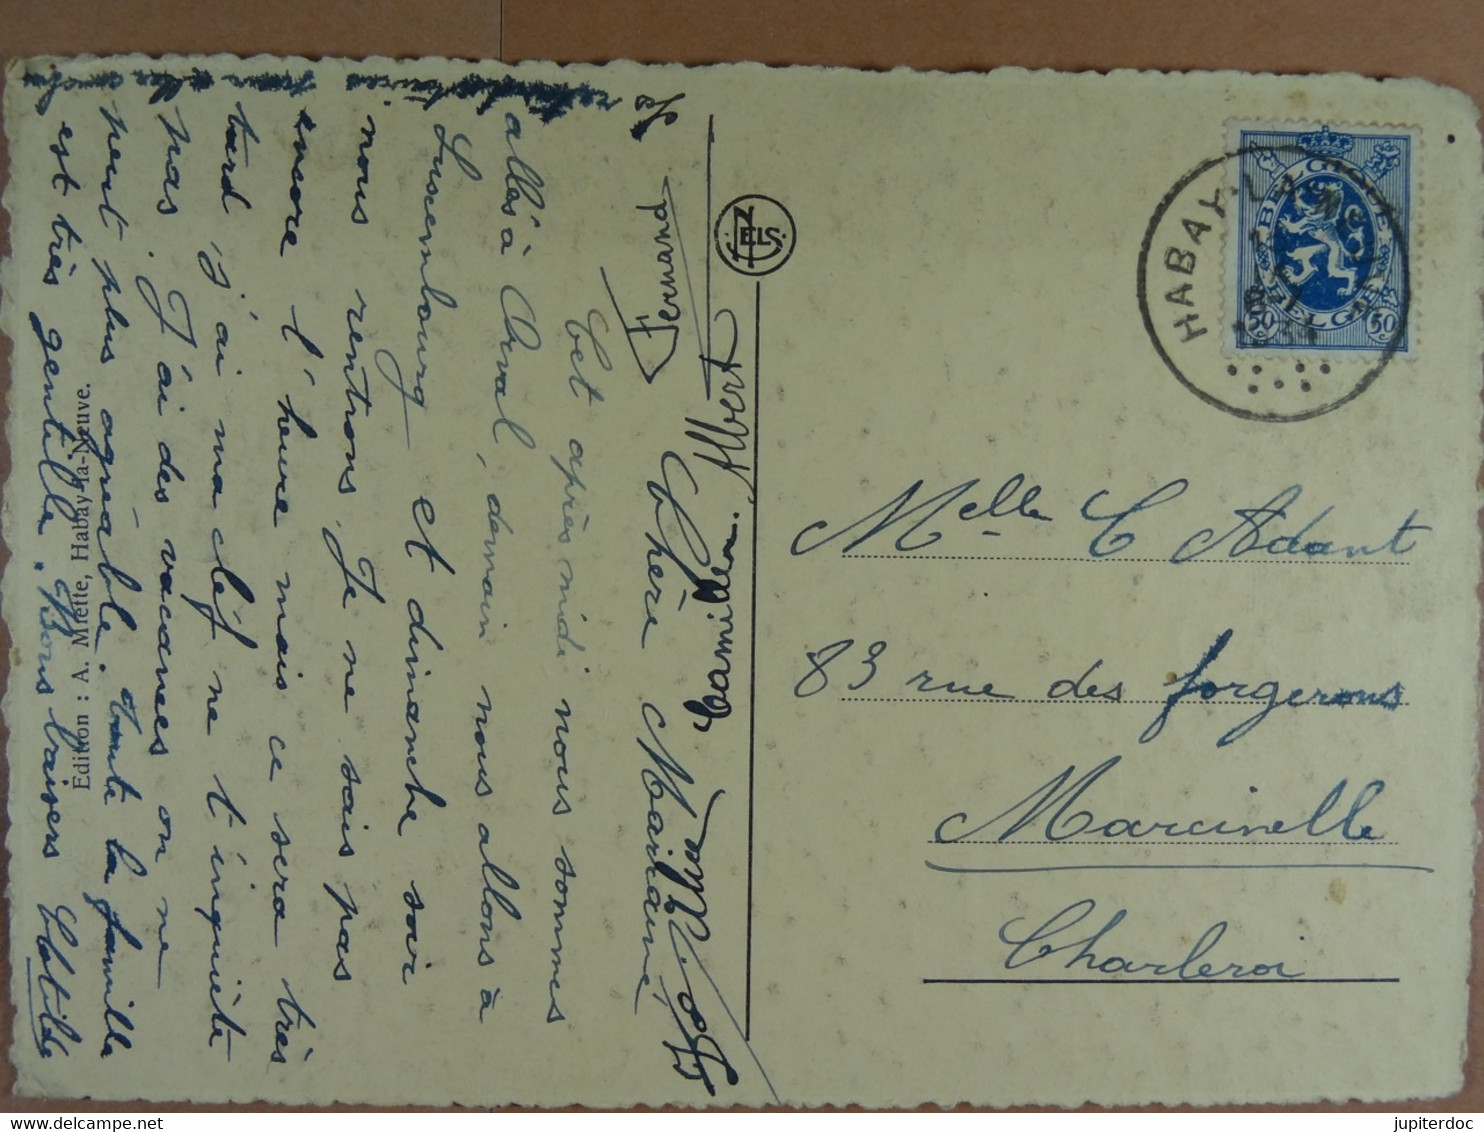 Chère Marraine,
Cet après-midi nous sommes
allés à Orval, demain nous allons à
Luxembourg et dimanche soir
nous rentrons. Je ne sais pas
encore l'heure mais ce sera très
tard j'ai ma clef ne t'inquiète
pas. J'ai des vacances on ne
peut plus agréable. toute la famille
est très gentille. Bons baisers Clotilde
Fernand
Albert
Camille
Edition : A. Miette, Habay-la-Neuve.
NELS
HABAY-LA-NEUVE
BELGIQUE
BELGIE
50 50
Melle C Adant
83 rue des forgerons
Marcinelle
Charleroi
jupiterdoc